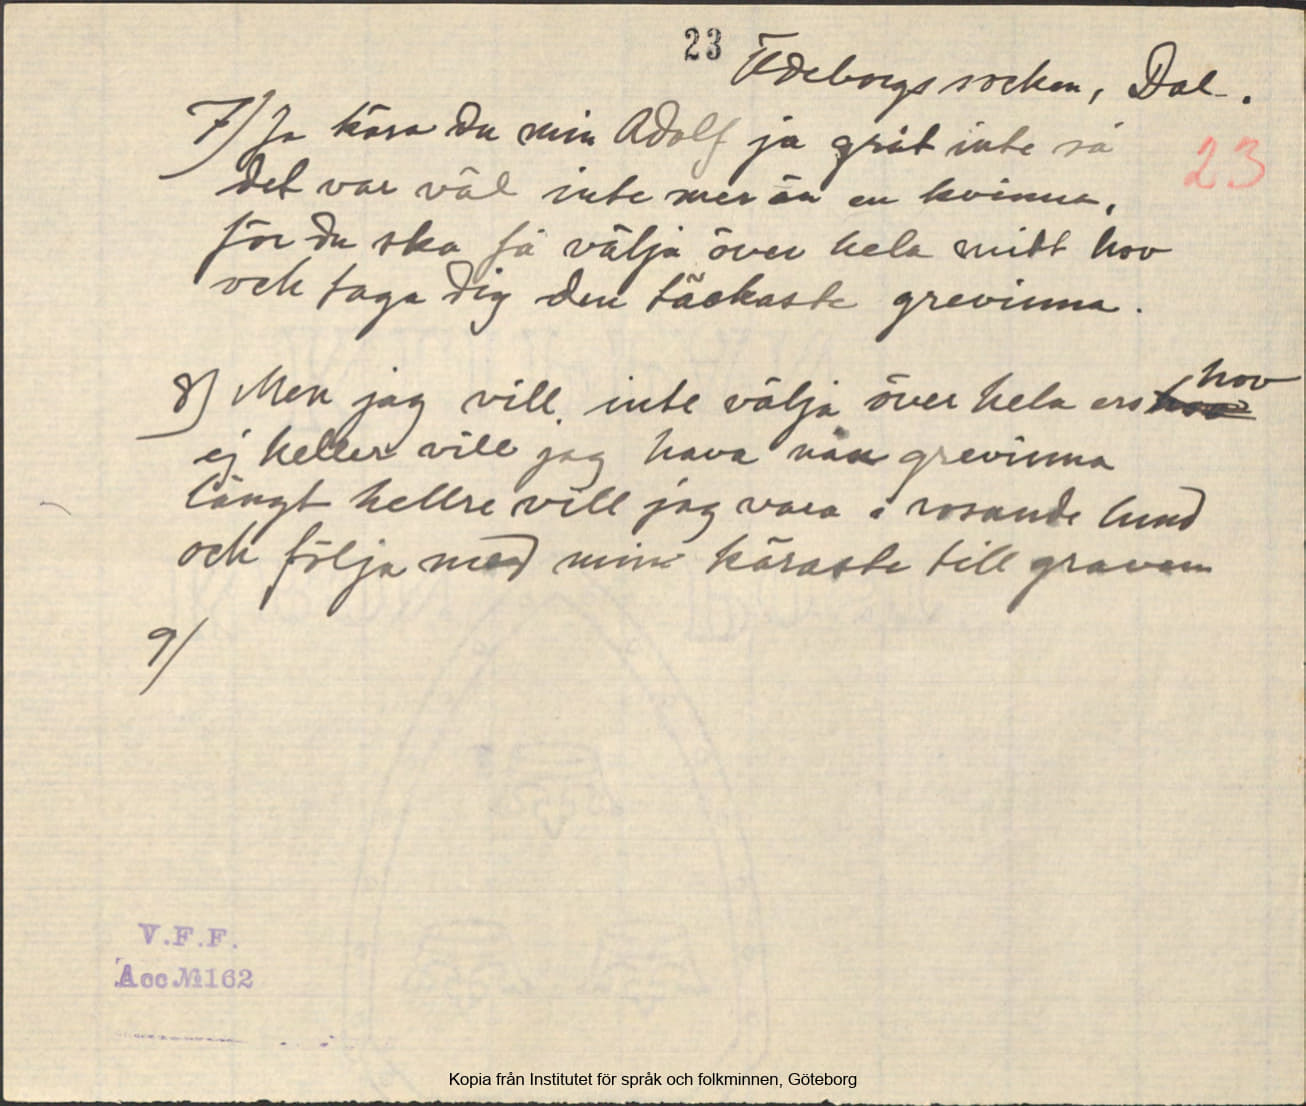 23
Ödeborgs socken, Dal.
7) Ja kära du min Adolf ja gråt inte så
23
det var väl inte mer än en kvinna,
för du ska få välja över hela mitt hov
och taga dig den täckaste grevinna.
hov
8) Men jag vill inte välja över hela ers
ej heller vill jag hava nån grevinna
långt hellre vill jag vara i rosande lund
och följa med min käraste till graven
9/
V.F.F.
Acc №162
Kopia från Institutet för språk och folkminnen, Göteborg